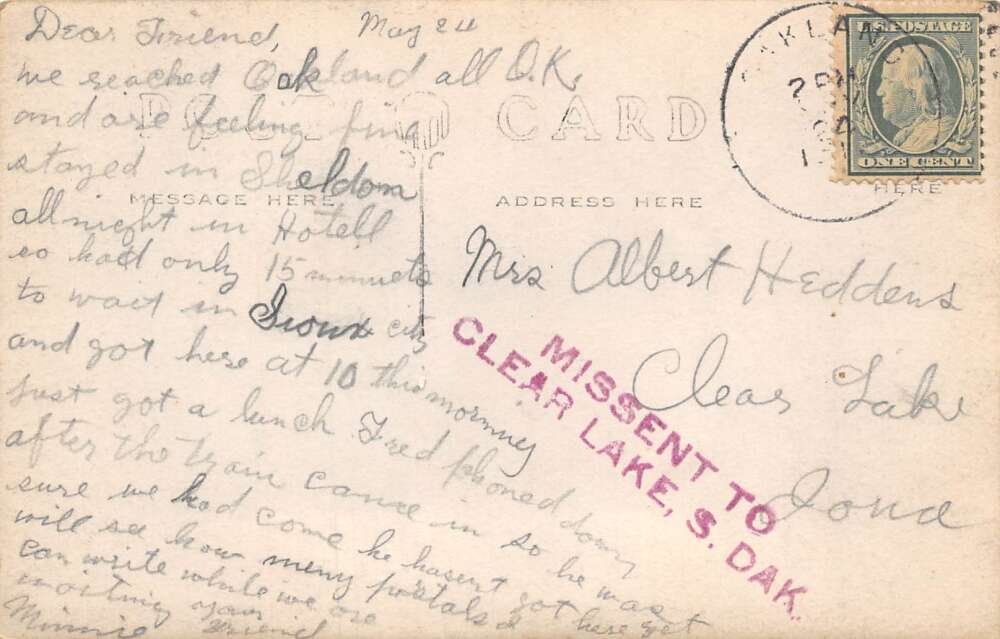 May 24
Dear Friend,
we reached Oakland all O.K.
and are feeling fine
stayed in Sheldom
all night in Hotell
so had only 15 minuets
to wait in Sioux city
and got here at 10 this morning
just got a lunch Fred phoned down
after the train came in so he was
sure we had come he hasent got here yet
will see how meny postals I
can write while we are
waiting your
Minnie friend
POST CARD
MESSAGE HERE
ADDRESS HERE
HERE
OAKLAND
2 PM
U.S. POSTAGE
ONE CENT
Mrs Albert Heddens
Clear Lake
Iowa
MISSENT TO
CLEAR LAKE, S. DAK.